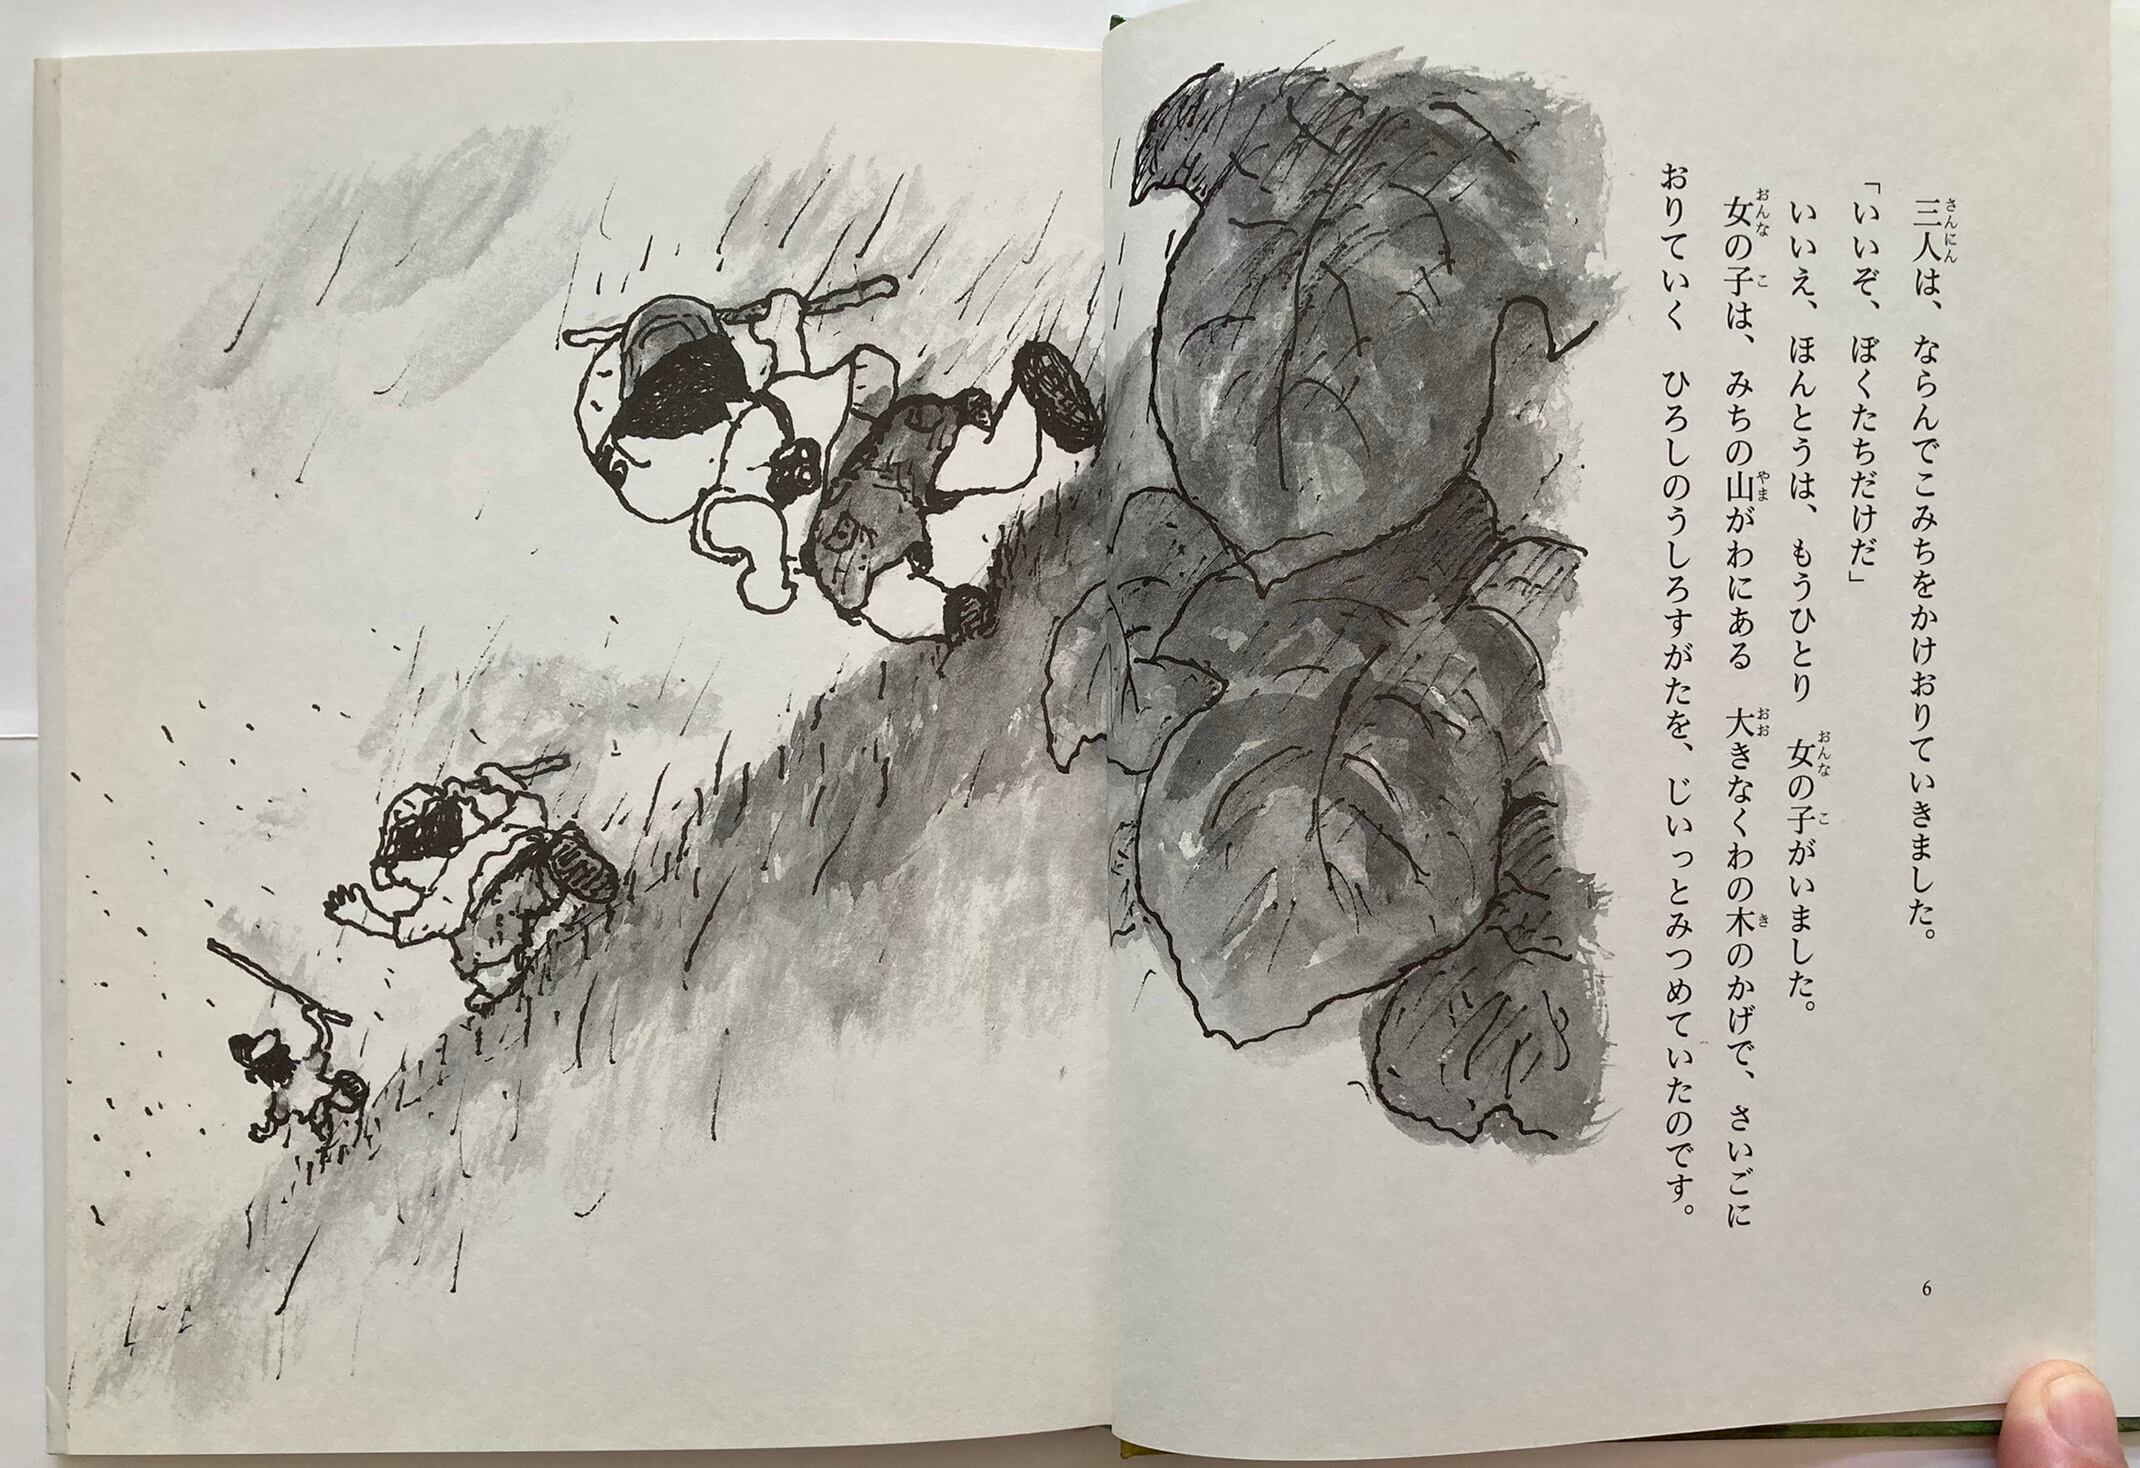 三人は、ならんでこみちをかけおりていきました。
「いいぞ、ぼくたちだけだ」
いいえ、ほんとうは、もうひとり　女の子がいました。
女の子は、みちの山がわにある　大きなくわの木のかげで、さいごに
おりていく　ひろしのうしろすがたを、じいっとみつめていたのです。
6